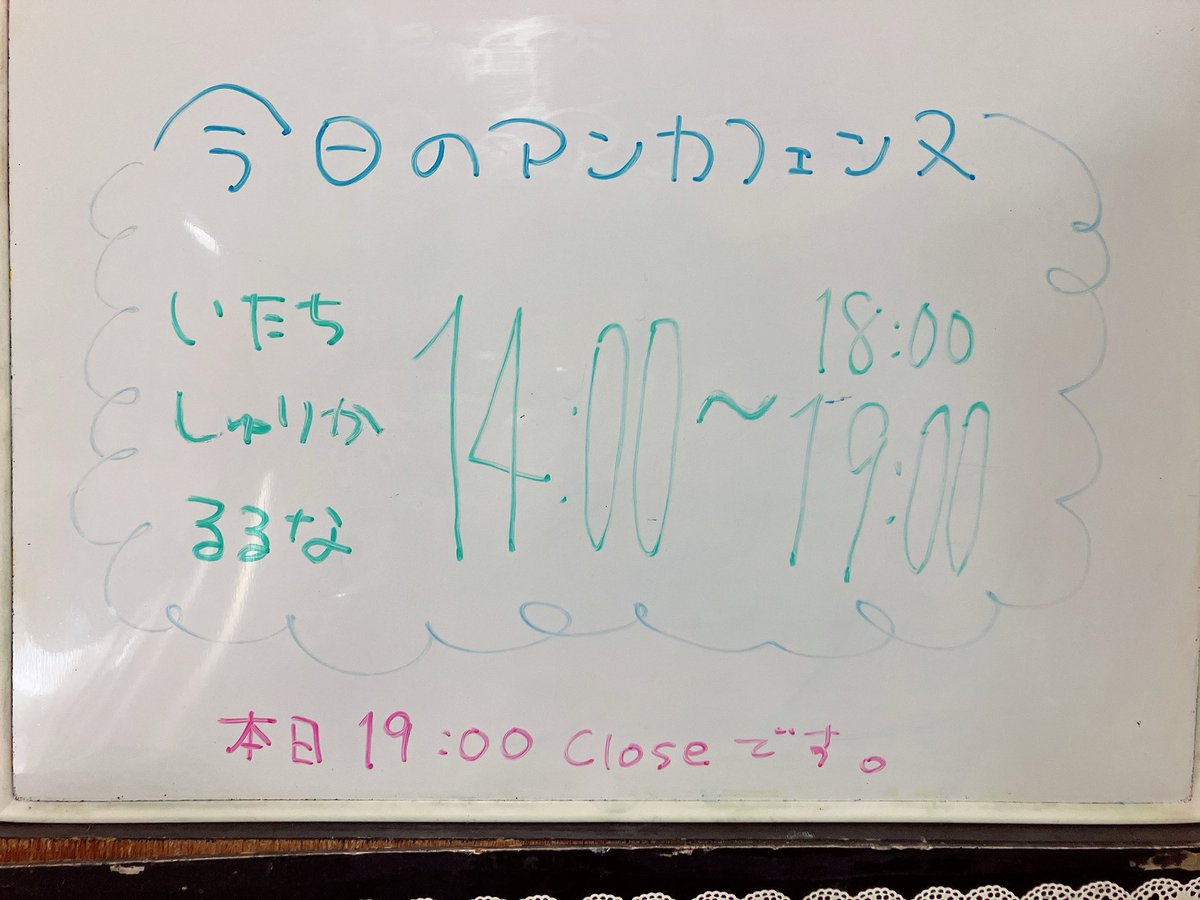 今日のマンカフェンヌ
いたち
しゅりか
るるな
14:00〜
18:00
19:00
本日 19:00 Closeです。